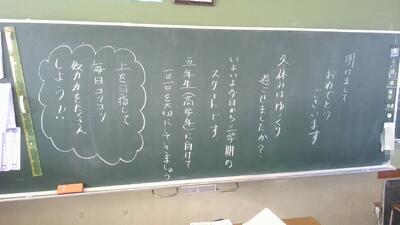 明けまして
おめでとう
ございます
冬休みはゆっくり
過ごせましたか？
いよいよ今日から三学期の
スタートです
五年生（高学年）に向けて
一日一日を大切にしていきましょう
上を目指して
毎日コツコツ
努力をたくさん
しよう!!